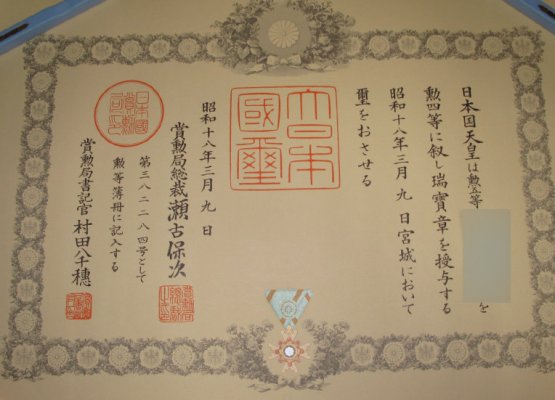 日本国天皇は勲五等
を
勲四等に叙し瑞寶章を授与する
昭和十八年三月九日宮城において
璽をおさせる
大日本
國璽
昭和十八年三月九日
賞勲局総裁瀬古保次
第三八二二八四号として
勲等簿冊に記入する
賞勲局書記官村田八千穂